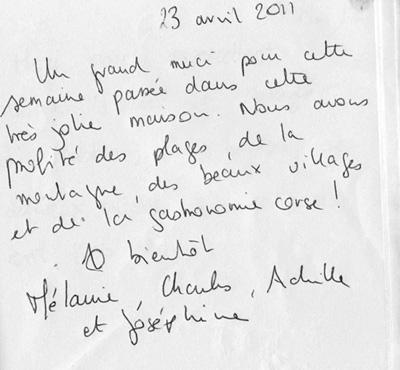 23 avril 2011
Un grand merci pour cette
semaine passée dans cette
très jolie maison. Nous avons
profité des plages, de la
montagne, des beaux villages
et de la gastronomie corse !
A bientôt
Mélanie, Charles, Achille
et Joséphine